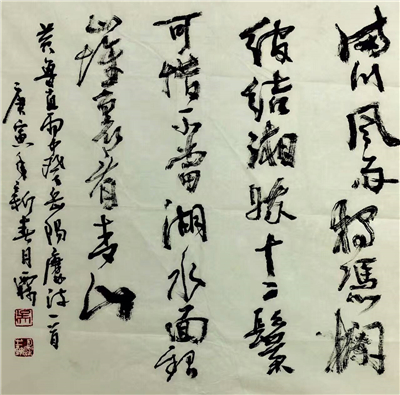 滿川風雨獨憑欄
綰結湘娥十二鬟
可惜不當湖水面銀
山堆裏看青山
黃魯直雨中登岳陽樓詩一首
庚寅年新春月